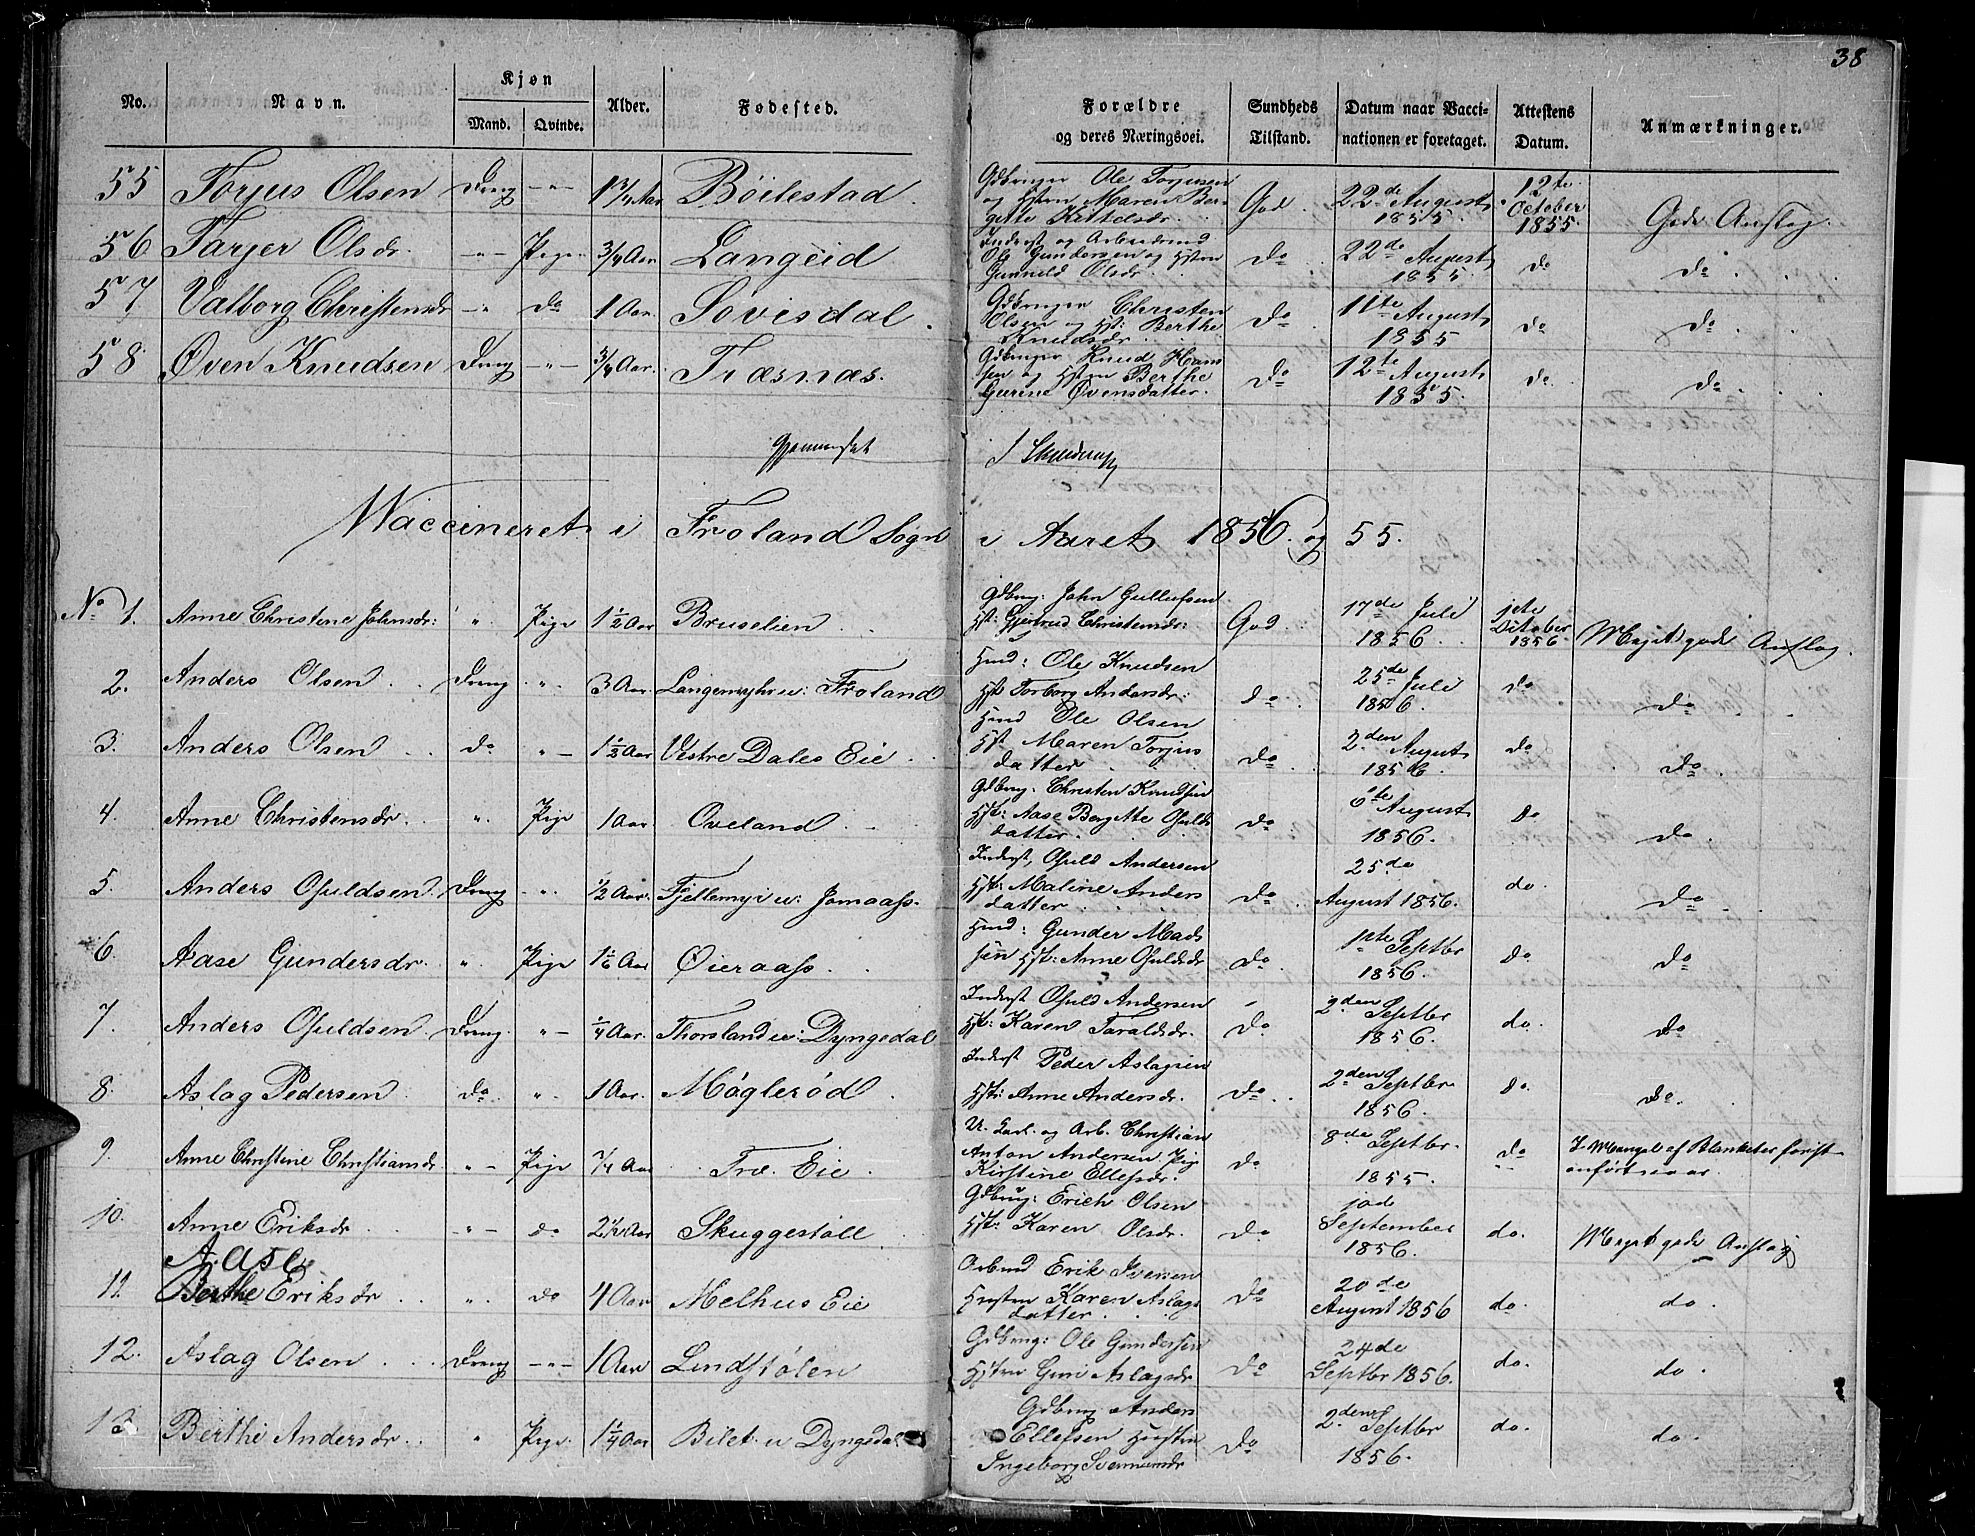 38
No. Navn. Kjøn Mand. Qvinde. Alder. Fødested. Forældre og deres Næringsvei. Sundheds Tilstand. Datum naar Vaccinationen er foretaget. Attestens Datum. Anmærkninger.
55 Torjus Olsen Dreng -"- 1 3/4 Aar Böilestad. Gdbruger Ole Torjusen
og Hstru Maren Bergitte Kittelsdr. God 22de August 1855. 12te October 1855. Godt Anslag.
56 Tarjer Olsdr. -"- Pige 3/4 Aar Langeid Inderst og Arbeidsmd
Ole Gundersen og Hstru
Gunnild Olsdr. do 22de August 1855 do do
57 Valborg Christensdr -"- do 1 Aar. Sovisdal. Gdbruger Christen
Olsen og Hst: Berthe
Knudsdr do 11te August 1855 do do
58 Øven Knudsen Dreng -"- 3/4 Aar. Træsnæs. Gdbruger Knud Hansen og Hstru Berthe
Gurine Øvensdatter. do 12te August 1855. do. do
Gjennemseet
Waccineret i Froland Sogn i Aaret 1856. og 55.
No 1. Anne Christine Johnsdr: " Pige 1 1/2 Aar Bruselien Gdbrug: John Gullufsen
Hst: Gjertrud Christensdr: God 17de Juli 1856 1ste October 1856 Meget godt Anslag.
2. Anders Olsen Dreng " 3 Aar Langemyhr u: Froland Hmd: Ole Knudsen
Hst Torborg Andersdr: do 25de Juli 1856. do do
3. Anders Olsen do " 1 1/2 Aar Vestre Dales Eie Hmd Ole Olsen
Hst Maren Torjus
datter do 2den August 1856. do do
4. Anne Christensdr. " Pige 1 Aar Oveland Gdbrug. Christen Knudsen
Hst: Aase Bergitte Ofulds
datter do 6te August 1856. do do
5. Anders Ofuldsen Dreng " 1/2 Aar. Fjellemyr u: Jomaass. Inderst, Ofuld Andersen
Hst: Maline Anders
datter do 25de August 1856. do. do
6. Aase Gundersdr. " Pige 1 1/6 Aar Øieraass. Hmd: Gunder Mads
sen Hst: Anne Ofuldsdr do 1ste Septbr 1856. do. do
7. Anders Ofuldsen. Dreng " 1/4 Aar. Thorsland u: Dyngedal Inderst Ofuld Andersen
Hst: Karen Taraldsdr. do 2den Septbr 1856. do. do
8. Aslag Pedersen do " 1 Aar. Møglerød Inderst Peder Aslagsen
Hst: Anne Andersdr. do 2den Septbr 1856. do. do.
9. Anne Christine Christiansdr " Pige 7/4 Aar Træ. Eie. U. Karl. og Arb. Christian
Anton Andersen Pig
Kirstine Ellefsdr. do 8de Septbr. 1855. do I Mangel af Blanketer først
anført iaar.
10. Anne Eriksdr " do 2 1/2 Aar Skuggestøll Gdbrug: Erich Olsen
Hst: Karen Olsdr. do September 1856. do. Meget godt Anslag
Aase
11. Berthe Eriksdr " do 4 Aar Melhus Eie Arbmd Erik Iversen
Hustru Karen Aslags
datter do 20de August 1856 do. do.
12. Aslag Olsen Dreng -"- 1 Aar Lindstølen Gdbrug: Ole Gundersen
Hstru Guri Aslagsdr do 24de Septbr 1856. do. do.
13 Berthe Andersdr. " Pige 1 1/4 Aar Bilet u Dyngedal Gdbrug Anders
Ellefsen Hustru
Ingeborg do 2den Septbr 1856. do. do.